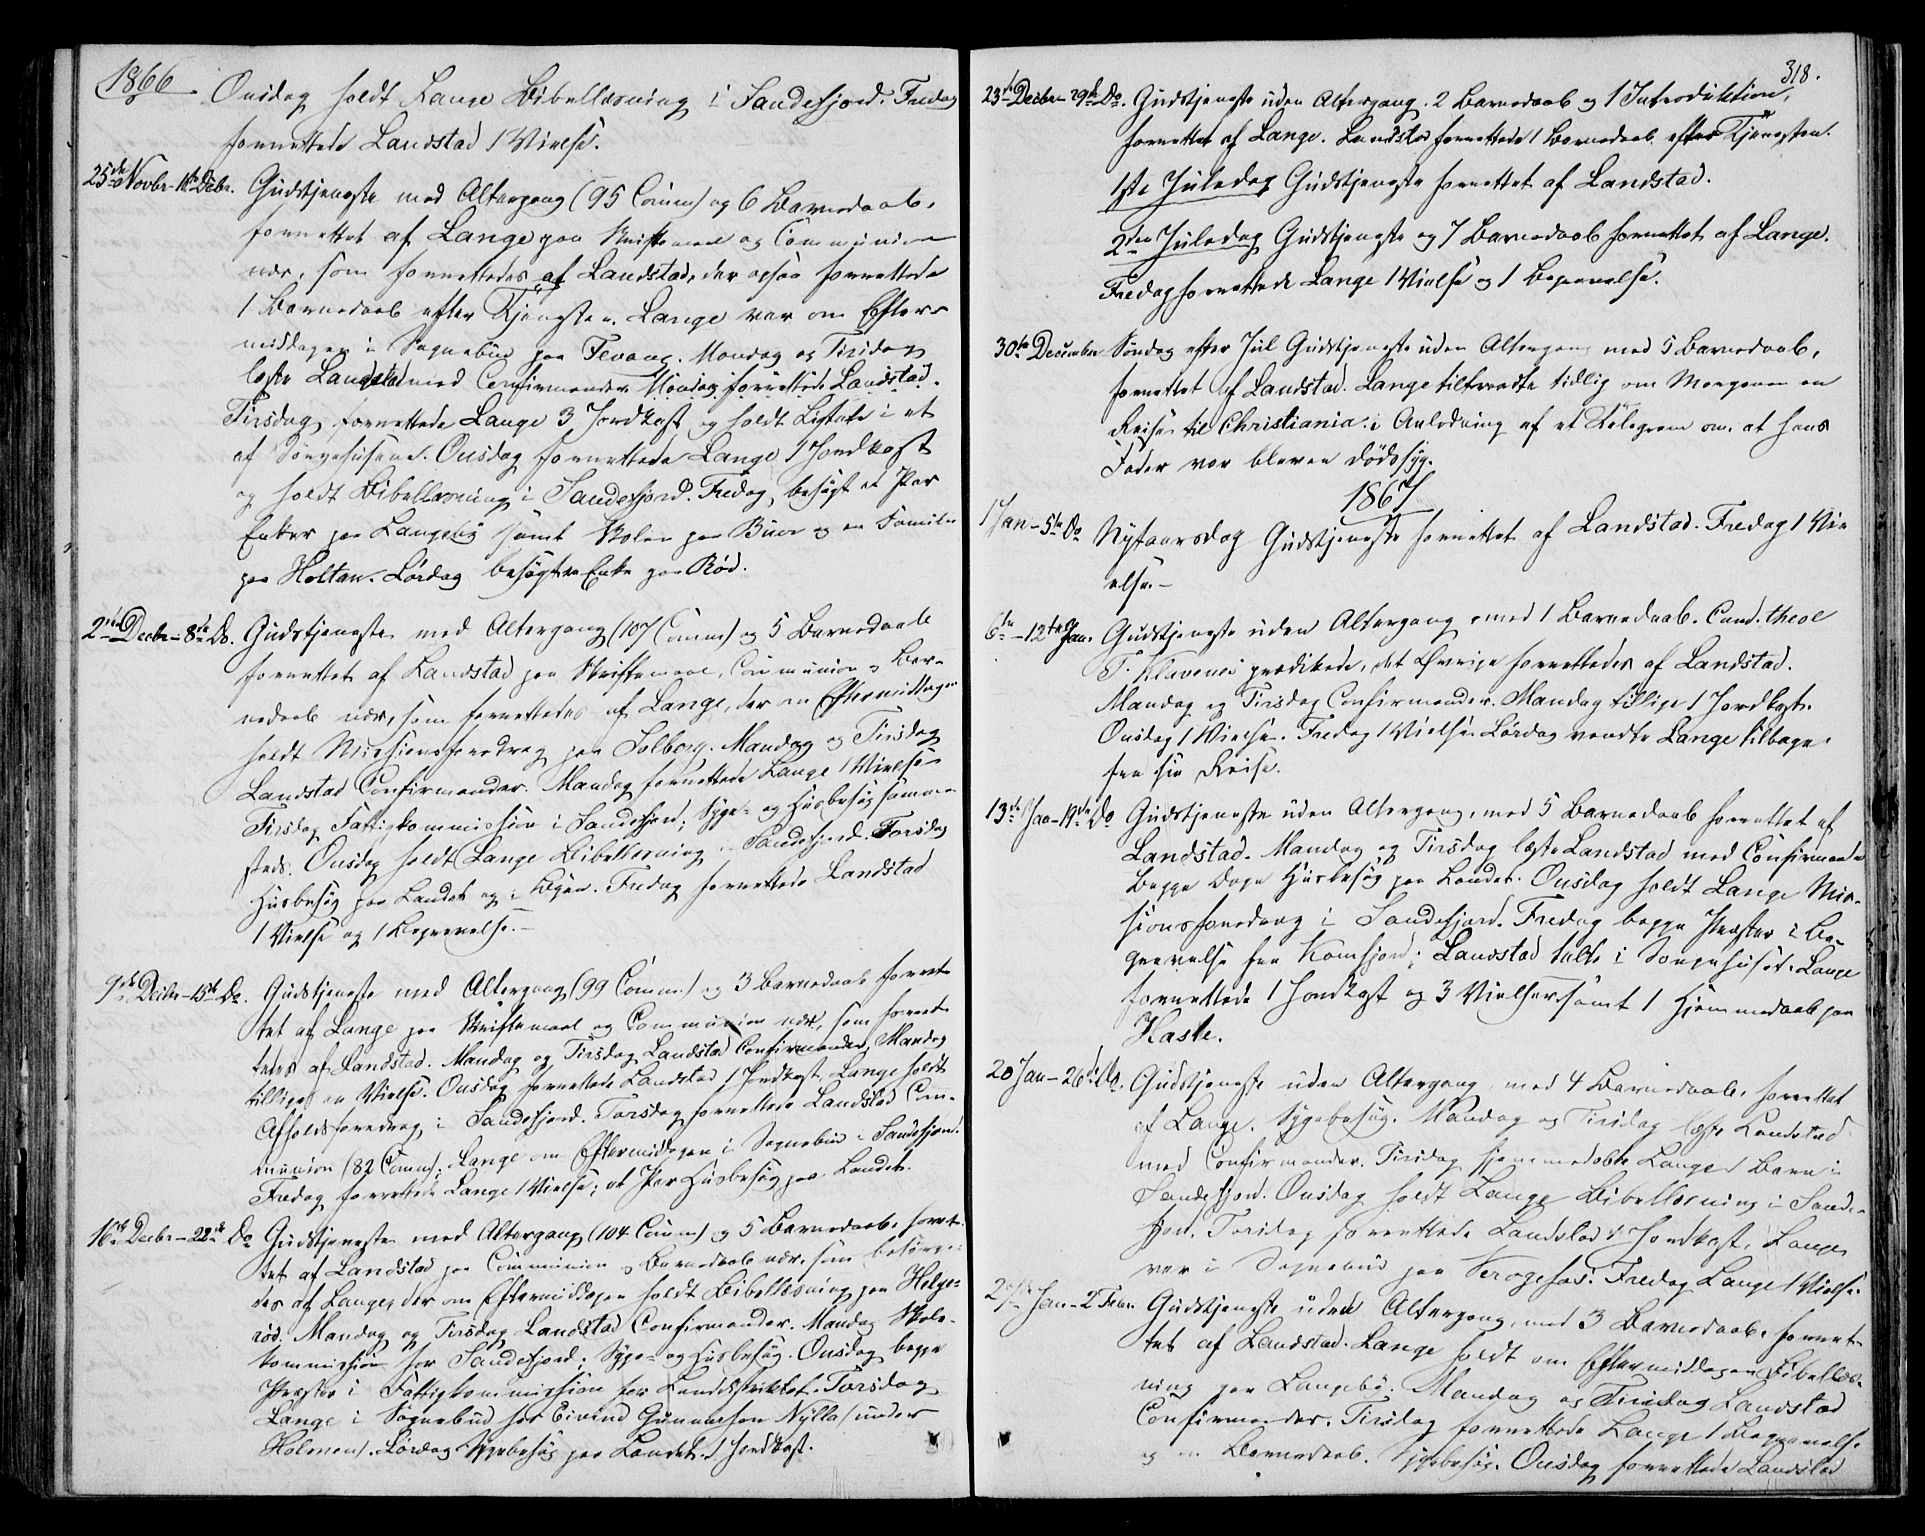 1866
Onsdag holdt Lange Bibellæsning i Sandefjord. Fredag
forrettede Landstad 1 Vielse.
25de Novbr - 1ste Debr. Gudstjeneste med Altergang (95 Comm) og 6 Barnedaab,
forrettet af Lange paa Skriftemaal og Communion
nær, som forrettedes af Landstad, der ogsaa forrettede
1 Barnedaab efter Tjenesten. Lange var om Efter-
middagen i Sognebud paa Fevang. Mandag og Tirsdag
læste Landstad med Confirmander. Mandag forrettede Landstad.
Tirsdag forrettede Lange 3 Jordkast og holdt Ligtale i et
af Sørgehusene. Onsdag forrettede Lange 1 Jordkast
og holdt Bibellæsning i Sandefjord. Fredag besøgt et Par
Enker paa Langeby samt Skolen paa Buer og en Familie
paa Holtan. Lørdag besøgt en Enke paa Rød.
2den Decbr - 8de Do. Gudstjeneste med Altergang (107 Comm) og 5 Barnedaab
forrettet af Landstad paa Skriftemaal, Communion og Bar-
nedaab nær, som forrettedes af Lange, der om Eftermiddagen
holdt Missionsforedrag paa Solberg. Mandag og Tirsdag
Landstad Confirmander. Mandag forrettede Lange 1 Vielse
Tirsdag Fattigkommission i Sandefjord; Syge- og Husbesøg samme-
steds. Onsdag holdt Lange Bibellæsning i Sandefjord. Torsdag
Husbesøg paa Landet og i Byen. Fredag forrettede Landstad
1 Vielse og 1 Begravelse.-
9de Decbr - 15de Do. Gudstjeneste med Altergang (99 Comm) og 3 Barnedaab forret-
tet af Lange paa Skriftemaal og Communion nær, som forret-
tedes af Landstad. Mandag og Tirsdag Landstad Confirmander, Mandag
tillige en Vielse. Onsdag forrettede Landstad 1 Jordkast, Lange holdt
Afholdsforedrag i Sandefjord. Torsdag forrettede Landstad Com-
munion (82 Comm); Lange om Eftermidagen i Sognebud i Sandefjord.
Fredag forrettede Lange 1 Vielse; et Par Husbesøg paa Landet.
16de Decbr - 22de Do Gudstjeneste med Altergang (104 Comm) og 5 Barnedaab, forret-
tet af Landstad paa Communion og Barnedaab nær, som besørge-
des af Lange, der om Eftermiddagen holdt Bibellæsning paa Helge-
rød. Mandag og Tirsdag Landstad Confirmander. Mandag Skole-
kommission for Sandefjord; Syge- og Husbesøg. Onsdag begge
Præster i Fattigkommission for Landdistriktet. Torsdag
Lange i Sognebud hos Eivind Gunnarsen Nylla (under
Holmen). Lørdag Sygebesøg paa Landet. 1 Jordkast.
318.
23de Decbr - 29de Do. Gudstjeneste uden Altergang. 2 Barnedaab og 1 Introduktion,
forrettet af Lange. Landstad forrettede 1 Barnedaab efter Tjenesten.
1ste Juledag Gudstjeneste forrettet af Landstad.
2den Juledag Gudstjeneste og 7 Barnedaab forrettet af Lange.
Fredag forrettede Lange 1 Vielse og 1 Begravelse.
30te December Søndag efter Jul Gudstjeneste uden Altergang med 5 Barnedaab,
forrettet af Landstad. Lange tiltraadte tidlig om Morgenen en
Reise til Christiania i Anledning af et Telegram om, at hans
Fader var bleven dødssyg.
1867
1 Jan - 5te Do Nytaarsdag Gudstjeneste forrettet af Landstad. Fredag 1 Vi-
else.-
6te - 12te Jan. Gudstjeneste uden Altergang, med 1 Barnedaab. Cand. theol
T. Klavenes prædikede, det Øvrige forrettedes af Landstad.
Mandag og Tirsdag Confirmander. Mandag tillige 1 Jordkast.
Onsdag 1 Vielse. Fredag 1 Vielse. Lørdag vendte Lange tilbage
fra sin Reise.
13de Jan - 19de Do Gudstjeneste uden Altergang, med 5 Barnedaab forrettet af
Landstad. Mandag og Tirsdag læste Landstad med Confirmander
begge Dage Husbesøg paa Landet. Onsdag holdt Lange Mis-
sionsforedrag i Sandefjord. Fredag begge Præster i Be-
gravelse fra Kamfjord; Landstad talte i Sørgehuset. Lange
forrettede 1 Jordkast og 3 Vielser samt 1 Hjemmedaab paa
Hasle.
20 Jan - 26de Do. Gudstjeneste uden Altergang, med 4 Barnedaab, forrettet
af Lange. Sygebesøg. Mandag og Tirsdag læste Landstad
med Confirmander. Tirsdag hjemmedøbte Lange 1 Barn i
Sandefjord. Onsdag holdt Lange Bibellæsning i Sande-
fjord. Torsdag forrettede Landstad 1 Jordkast, Lange
var i Sognebud paa Fredag Lange 1 Vielse
27de Jan - 2 Febr. Gudstjeneste uden Altergang, med 3 Barnedaab, forret-
tet af Landstad. Lange holdt om Eftermiddagen Bibellæs-
ning paa Langeby. Mandag og Tirsdag Landstad
Confirmander. Tirsdag forrettede Lange 1 Begravelse
og en Barnedaab. Sygebesøg. Onsdag forrettede Landstad